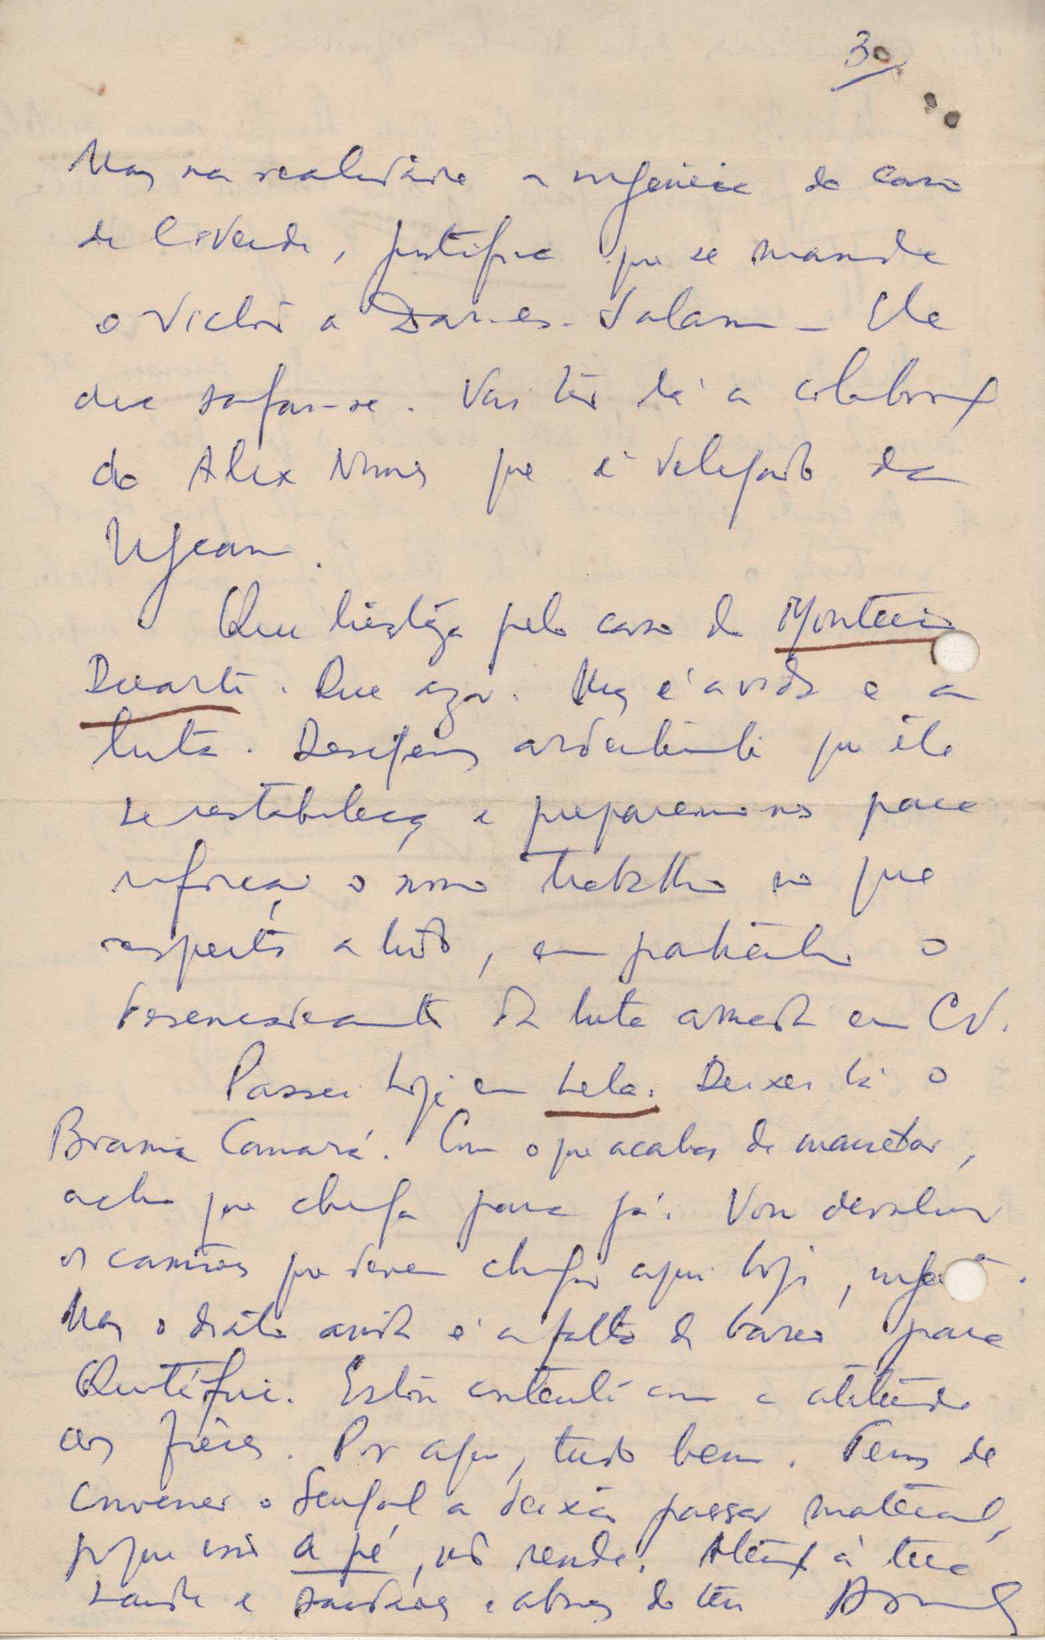 3º
Mas na realidade a urgência do caso
de C. Verde, justifica que se mande
o Victor a Dar-es-Salam - Ele
que safar-se. Vai ter lá a colaboraç
do Alex Nunes que é delegado da
Ugean.
Que tristeza pelo caso do Monteiro
Duarte. Que azar. Mas é a vida e a
luta. Desejemos ardentemente que ele
se restabeleça e preparemo-nos para
reforçar o nosso trabalho no que
respeita a tudo, em particular o
desencadeamento da luta armada em CV.
Passei hoje em Lela. Deixei lá o
Braima Camará. Com o que acabas de mandar,
acho que chega para já. Vou devolver
os camiões que devem chegar aqui hoje,
Mas o diabo ainda é a falta de barco para
Quitáfine. Estou contente com a atitude
dos frères. Por aqui, tudo bem. Temos de
convencer o Senegal a deixar passar material,
porque isso a pé, não rende. Atenç à tua
saúde e saudades e abraços do teu